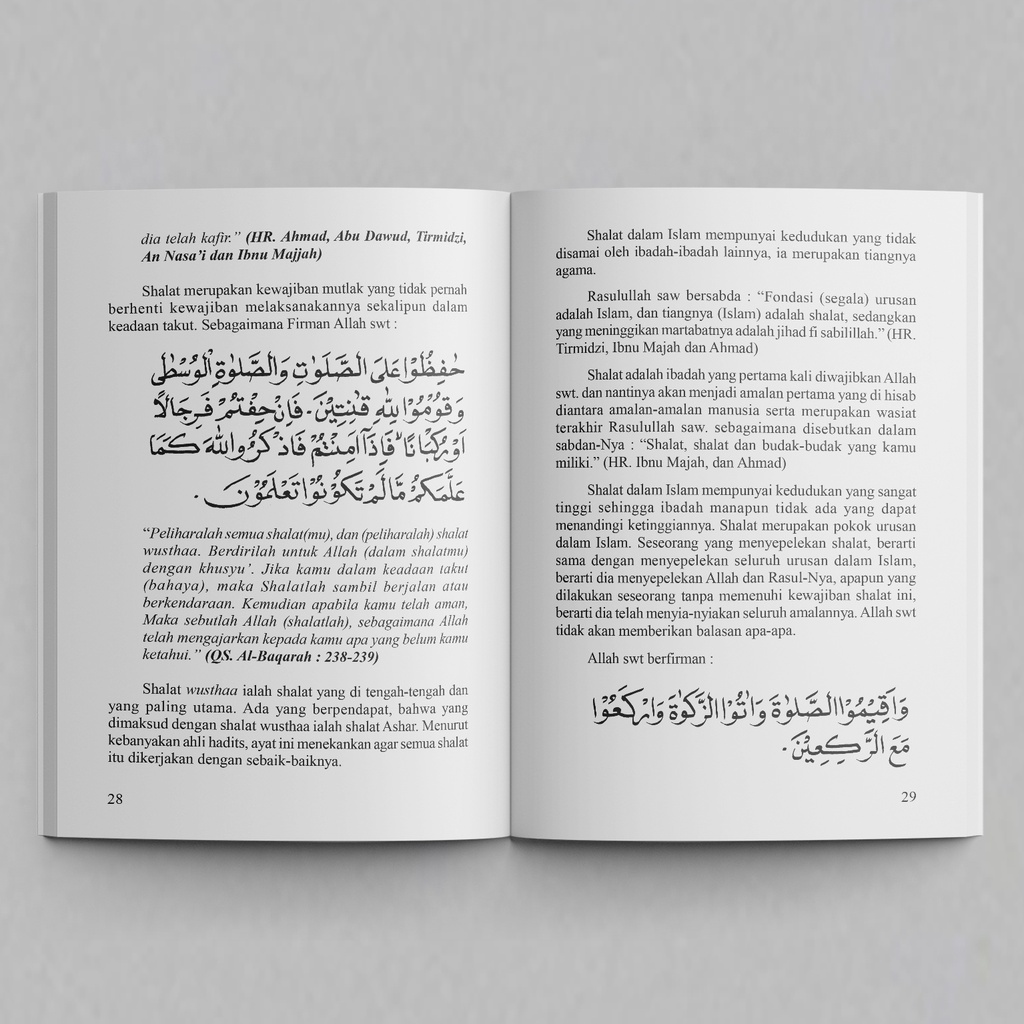 dia telah kafir.” (HR. Ahmad, Abu Dawud, Tirmidzi,
An Nasa’i dan Ibnu Majjah)
Shalat merupakan kewajiban mutlak yang tidak pernah
berhenti kewajiban melaksanakannya sekalipun dalam
keadaan takut. Sebagaimana Firman Allah swt :
حٰفِظُوْا عَلَى الصَّلَوٰتِ وَالصَّلٰوةِ الْوُسْطٰى
وَقُوْمُوْا لِلّٰهِ قٰنِتِيْنَ. فَاِنْ خِفْتُمْ فَرِجَالًا
اَوْ رُكْبَانًا فَاِذَآ اَمِنْتُمْ فَاذْكُرُوا اللّٰهَ كَمَا
عَلَّمَكُمْ مَّا لَمْ تَكُوْنُوْا تَعْلَمُوْنَ.
“Peliharalah semua shalat(mu), dan (peliharalah) shalat
wusthaa. Berdirilah untuk Allah (dalam shalatmu)
dengan khusyu’. Jika kamu dalam keadaan takut
(bahaya), maka Shalatlah sambil berjalan atau
berkendaraan. Kemudian apabila kamu telah aman,
Maka sebutlah Allah (shalatlah), sebagaimana Allah
telah mengajarkan kepada kamu apa yang belum kamu
ketahui.” (QS. Al-Baqarah : 238-239)
Shalat wusthaa ialah shalat yang di tengah-tengah dan
yang paling utama. Ada yang berpendapat, bahwa yang
dimaksud dengan shalat wusthaa ialah shalat Ashar. Menurut
kebanyakan ahli hadits, ayat ini menekankan agar semua shalat
itu dikerjakan dengan sebaik-baiknya.
28
Shalat dalam Islam mempunyai kedudukan yang tidak
disamai oleh ibadah-ibadah lainnya, ia merupakan tiangnya
agama.
Rasulullah saw bersabda : “Fondasi (segala) urusan
adalah Islam, dan tiangnya (Islam) adalah shalat, sedangkan
yang meninggikan martabatnya adalah jihad fi sabilillah.” (HR.
Tirmidzi, Ibnu Majah dan Ahmad)
Shalat adalah ibadah yang pertama kali diwajibkan Allah
swt. dan nantinya akan menjadi amalan pertama yang di hisab
diantara amalan-amalan manusia serta merupakan wasiat
terakhir Rasulullah saw. sebagaimana disebutkan dalam
sabdan-Nya : “Shalat, shalat dan budak-budak yang kamu
miliki.” (HR. Ibnu Majah, dan Ahmad)
Shalat dalam Islam mempunyai kedudukan yang sangat
tinggi sehingga ibadah manapun tidak ada yang dapat
menandingi ketinggiannya. Shalat merupakan pokok urusan
dalam Islam. Seseorang yang menyepelekan shalat, berarti
sama dengan menyepelekan seluruh urusan dalam Islam,
berarti dia menyepelekan Allah dan Rasul-Nya, apapun yang
dilakukan seseorang tanpa memenuhi kewajiban shalat ini,
berarti dia telah menyia-nyiakan seluruh amalannya. Allah swt
tidak akan memberikan balasan apa-apa.
Allah swt berfirman :
وَاَقِيْمُوا الصَّلٰوةَ وَاٰتُوا الزَّكٰوةَ وَارْكَعُوْا
مَعَ الرّٰكِعِيْنَ.
29